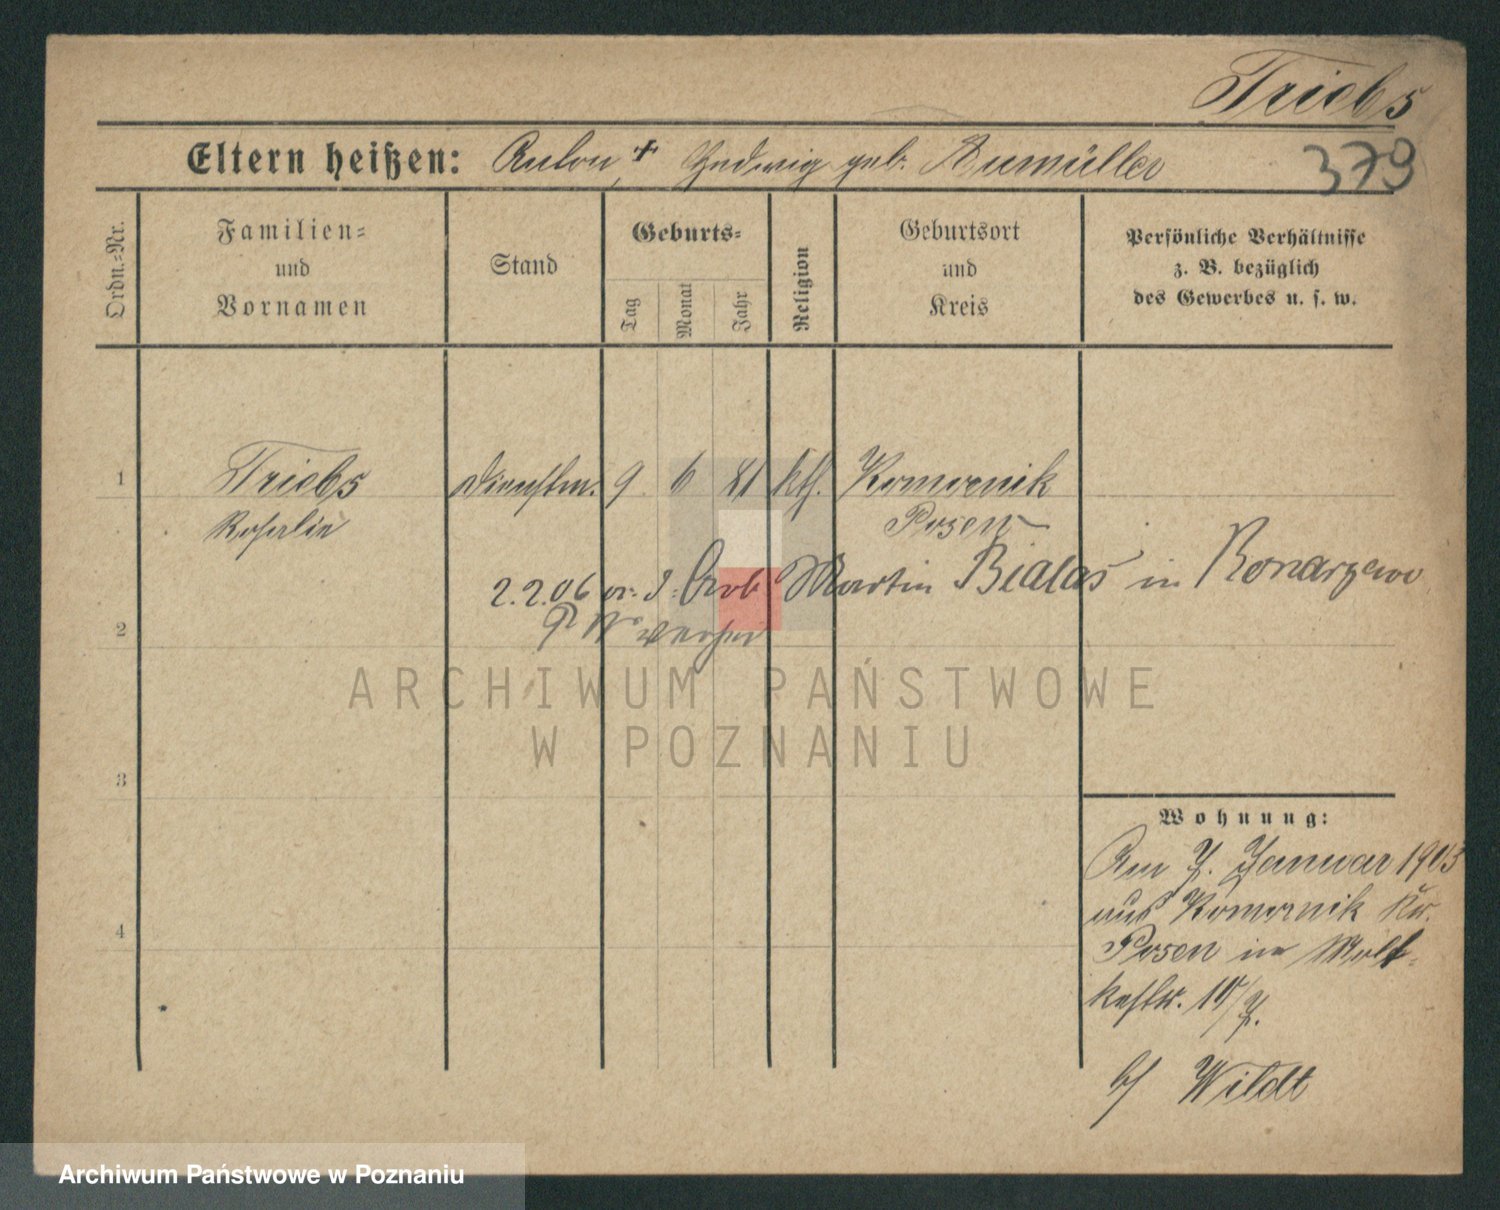 Triebs
Eltern heißen: Anton + Hedwig geb. Aumüller
379
Ordn.-Nr.
Familien-
und
Vornamen
Stand
Geburts-
Tag
Monat
Jahr
Religion
Geburtsort
und
Kreis
Persönliche Verhältnisse
z. B. bezüglich
des Gewerbes u. s. w.
1
Triebs
Rosalie
Dienstm.
9 6 81 kth.
Komornik
Posen
2.2.06 Arb. Martin Bialas in Konarzewo
2
3
4
Wohnung:
Am 7. Januar 1903
aus Komornik Kr.
Posen in Molt-
kestr. 10/7.
b/ Wildt
ARCHIWUM PAŃSTWOWE
W POZNANIU
Archiwum Państwowe w Poznaniu